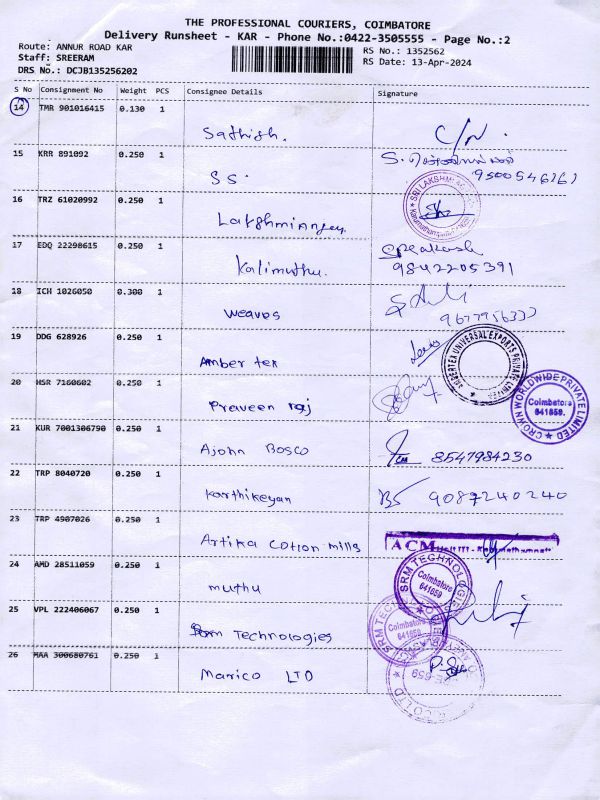 THE PROFESSIONAL COURIERS, COIMBATORE
Delivery Runsheet - KAR - Phone No.:0422-3505555 - Page No.:2
Route: ANNUR ROAD KAR
RS No.: 1352562
Staff: SREERAM
RS Date: 13-Apr-2024
DRS No.: DCJB135256202
S No Consignment No Weight PCS Consignee Details Signature
14 TMR 901016415 0.130 1
Sathish.
C/N.
15 KRR 891092 0.250 1
SS.
9500546161
16 TRZ 61020992 0.250 1
SRI LAKSHMI
17 EDQ 22298615 0.250 1
Kalimuthu.
9842205391
18 ICH 1026050 0.300 1
weavos
19 DDG 628926 0.250 1
Amber tex
AMBERTEX UNIVERSAL EXPORTS PRIVATE LIMITED
20 HSR 7160602 0.250 1
Praveen raj
CROWN WORLDWIDE PRIVATE LIMITED
Coimbatore
641659.
21 KUR 7001306790 0.250 1
Ajohn Bosco
8547984230
22 TRP 8040720 0.250 1
Karthikeyan
9087240240
23 TRP 4907026 0.250 1
Artika cotton mills
ACM Unit III
24 AMD 28511059 0.250 1
muthu
SRM TECHNOLOGIES
Coimbatore
641659
25 VPL 222406067 0.250 1
Technologies
SRM TECHNOLOGIES
Coimbatore
641659
26 MAA 300680761 0.250 1
Marico LTD